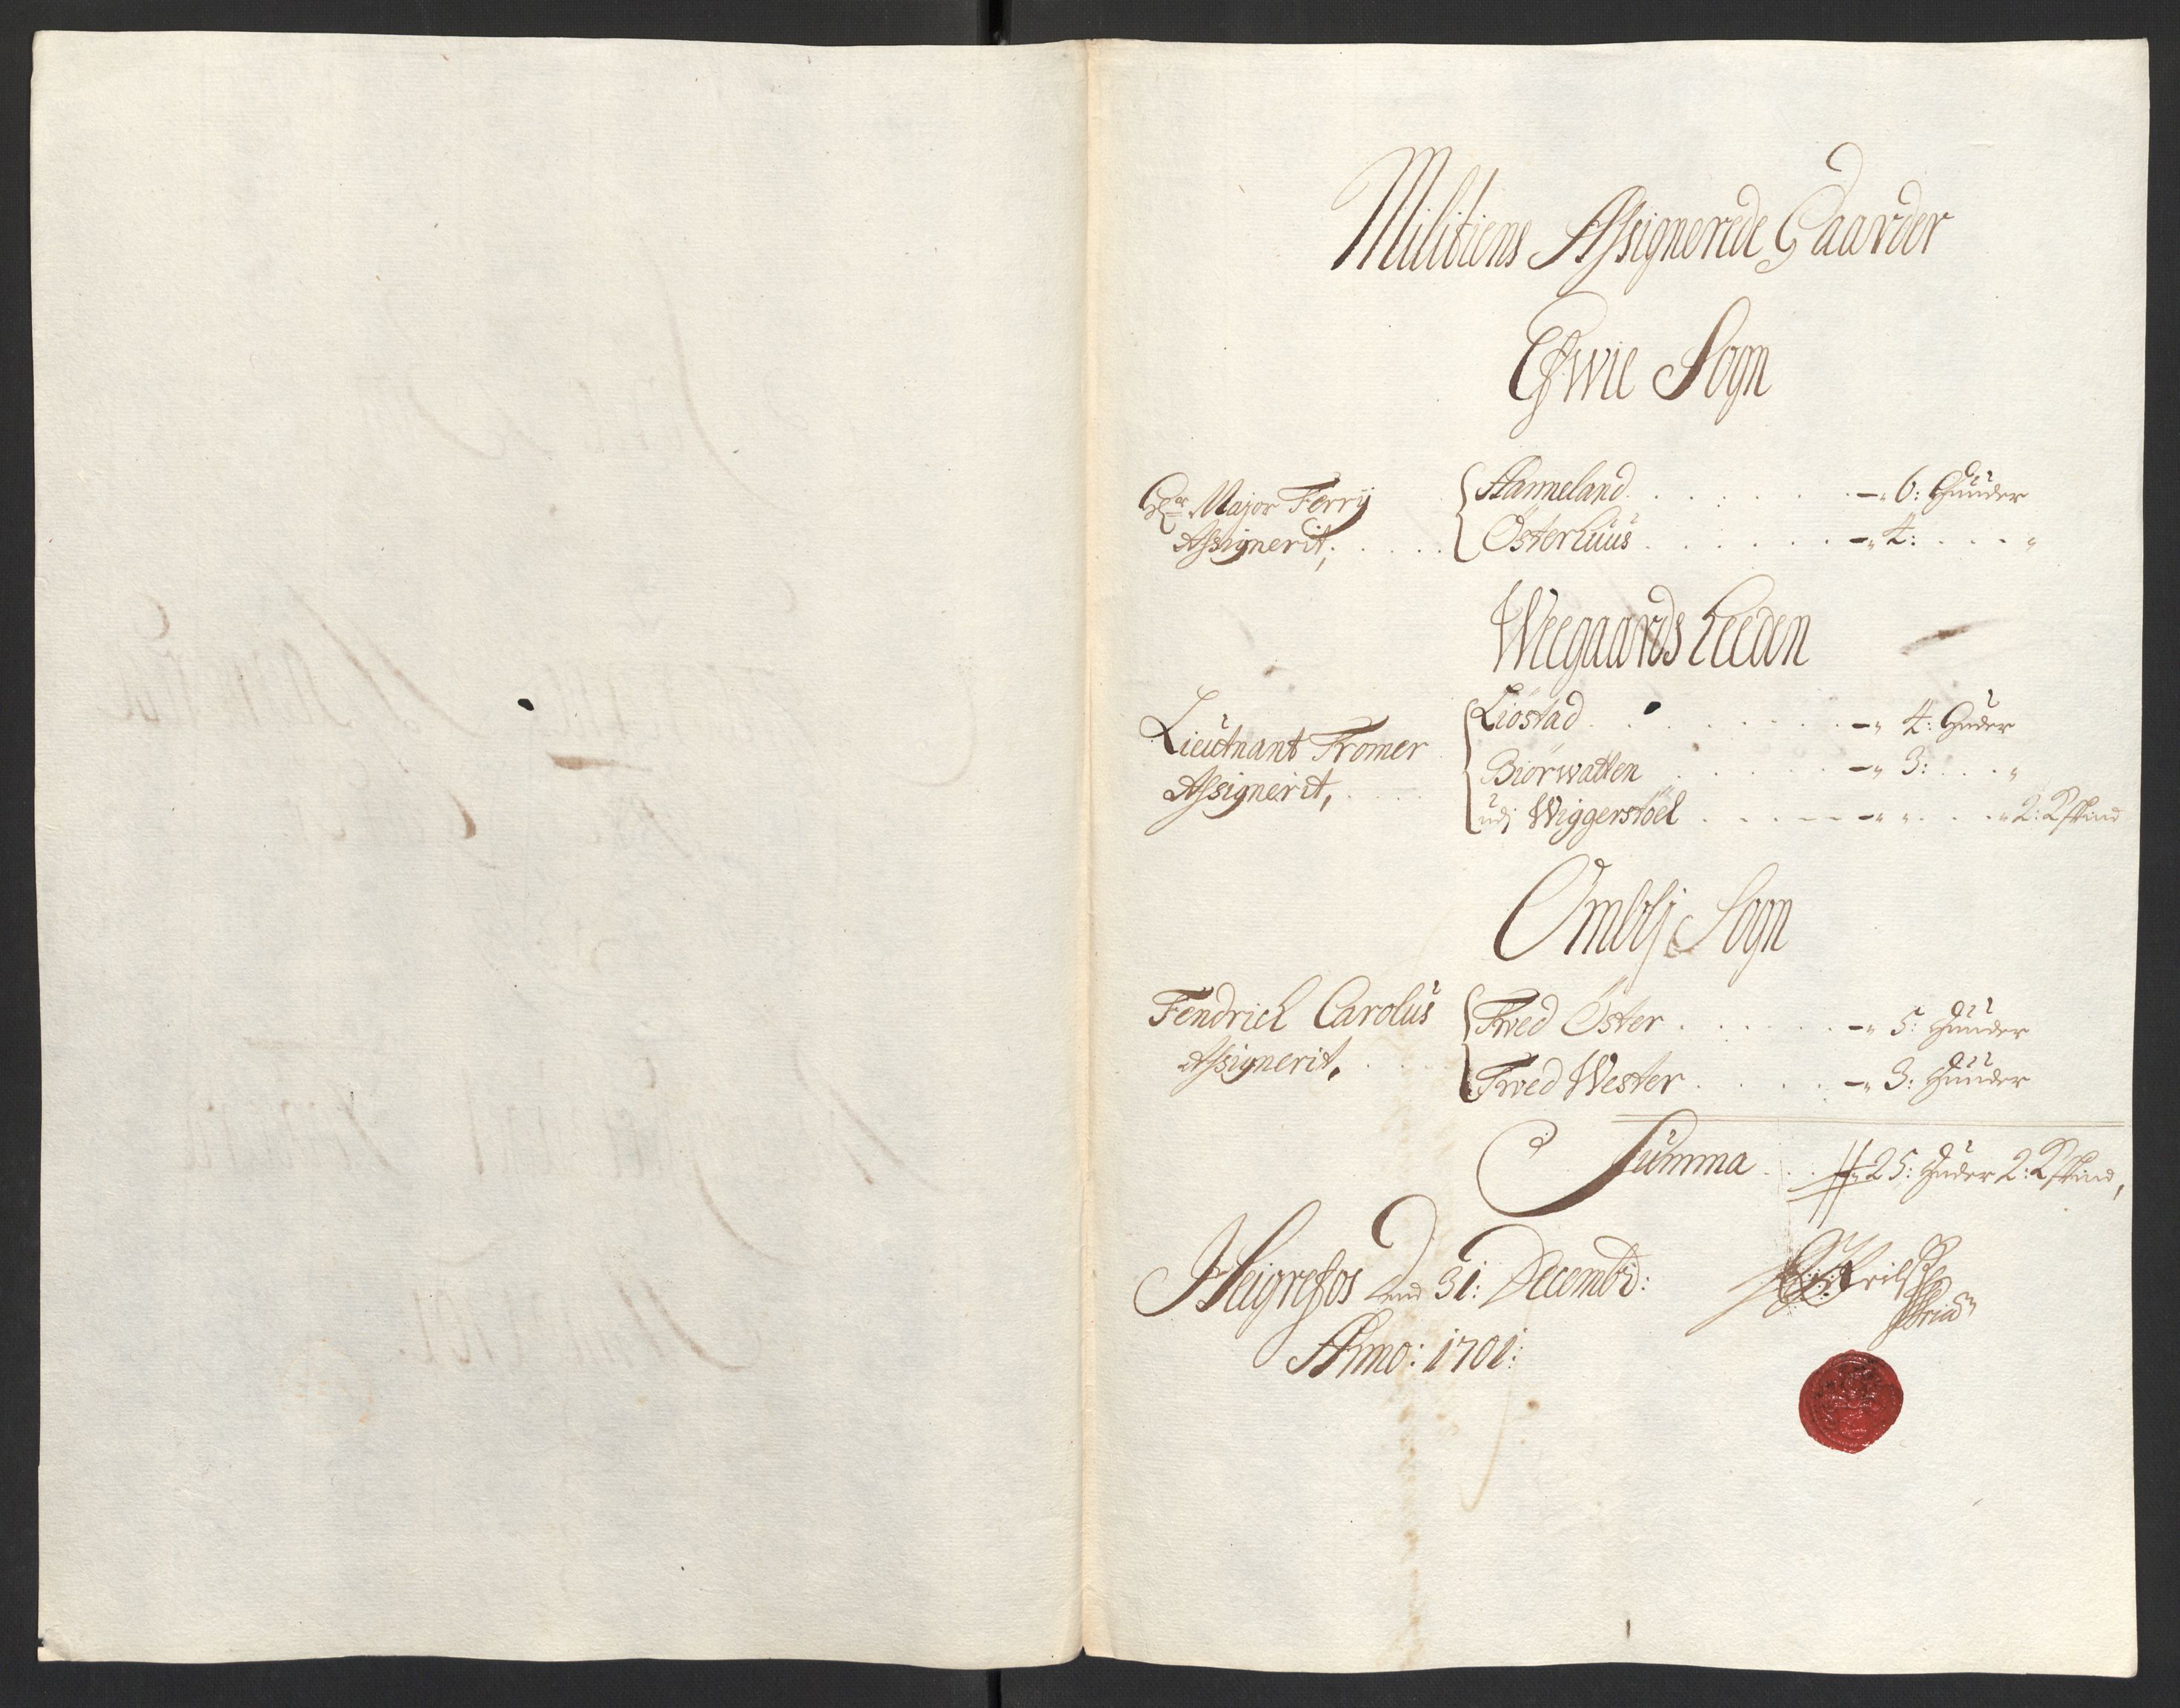 Militiens Assignerede Gaarder
Efwie Sogn
Hr Major Ferrÿ
Assignerit,
Hanneland . . . . . . . 6: Huuder
Österhuus . . . . . . . 4: . . . . "
Weegaardsheeden
Lieutnant Fromer
Assignerit,
Liöstad . . . . . . . 4: Huder
Biörwatten . . . . . . 3: . . . "
udj Wiggerstöel . . . . . . " . . . 2: Kskind
Omblj Sogn
Fendrich Carolus
Assignerit,
Twed Öster . . . . . . 5: Huuder
Twed Wester . . . . . 3: Huuder
Summa . . . 25: Huder 2: Kskind,
Heigrefos den 31: Decembr:
Anno: 1701: